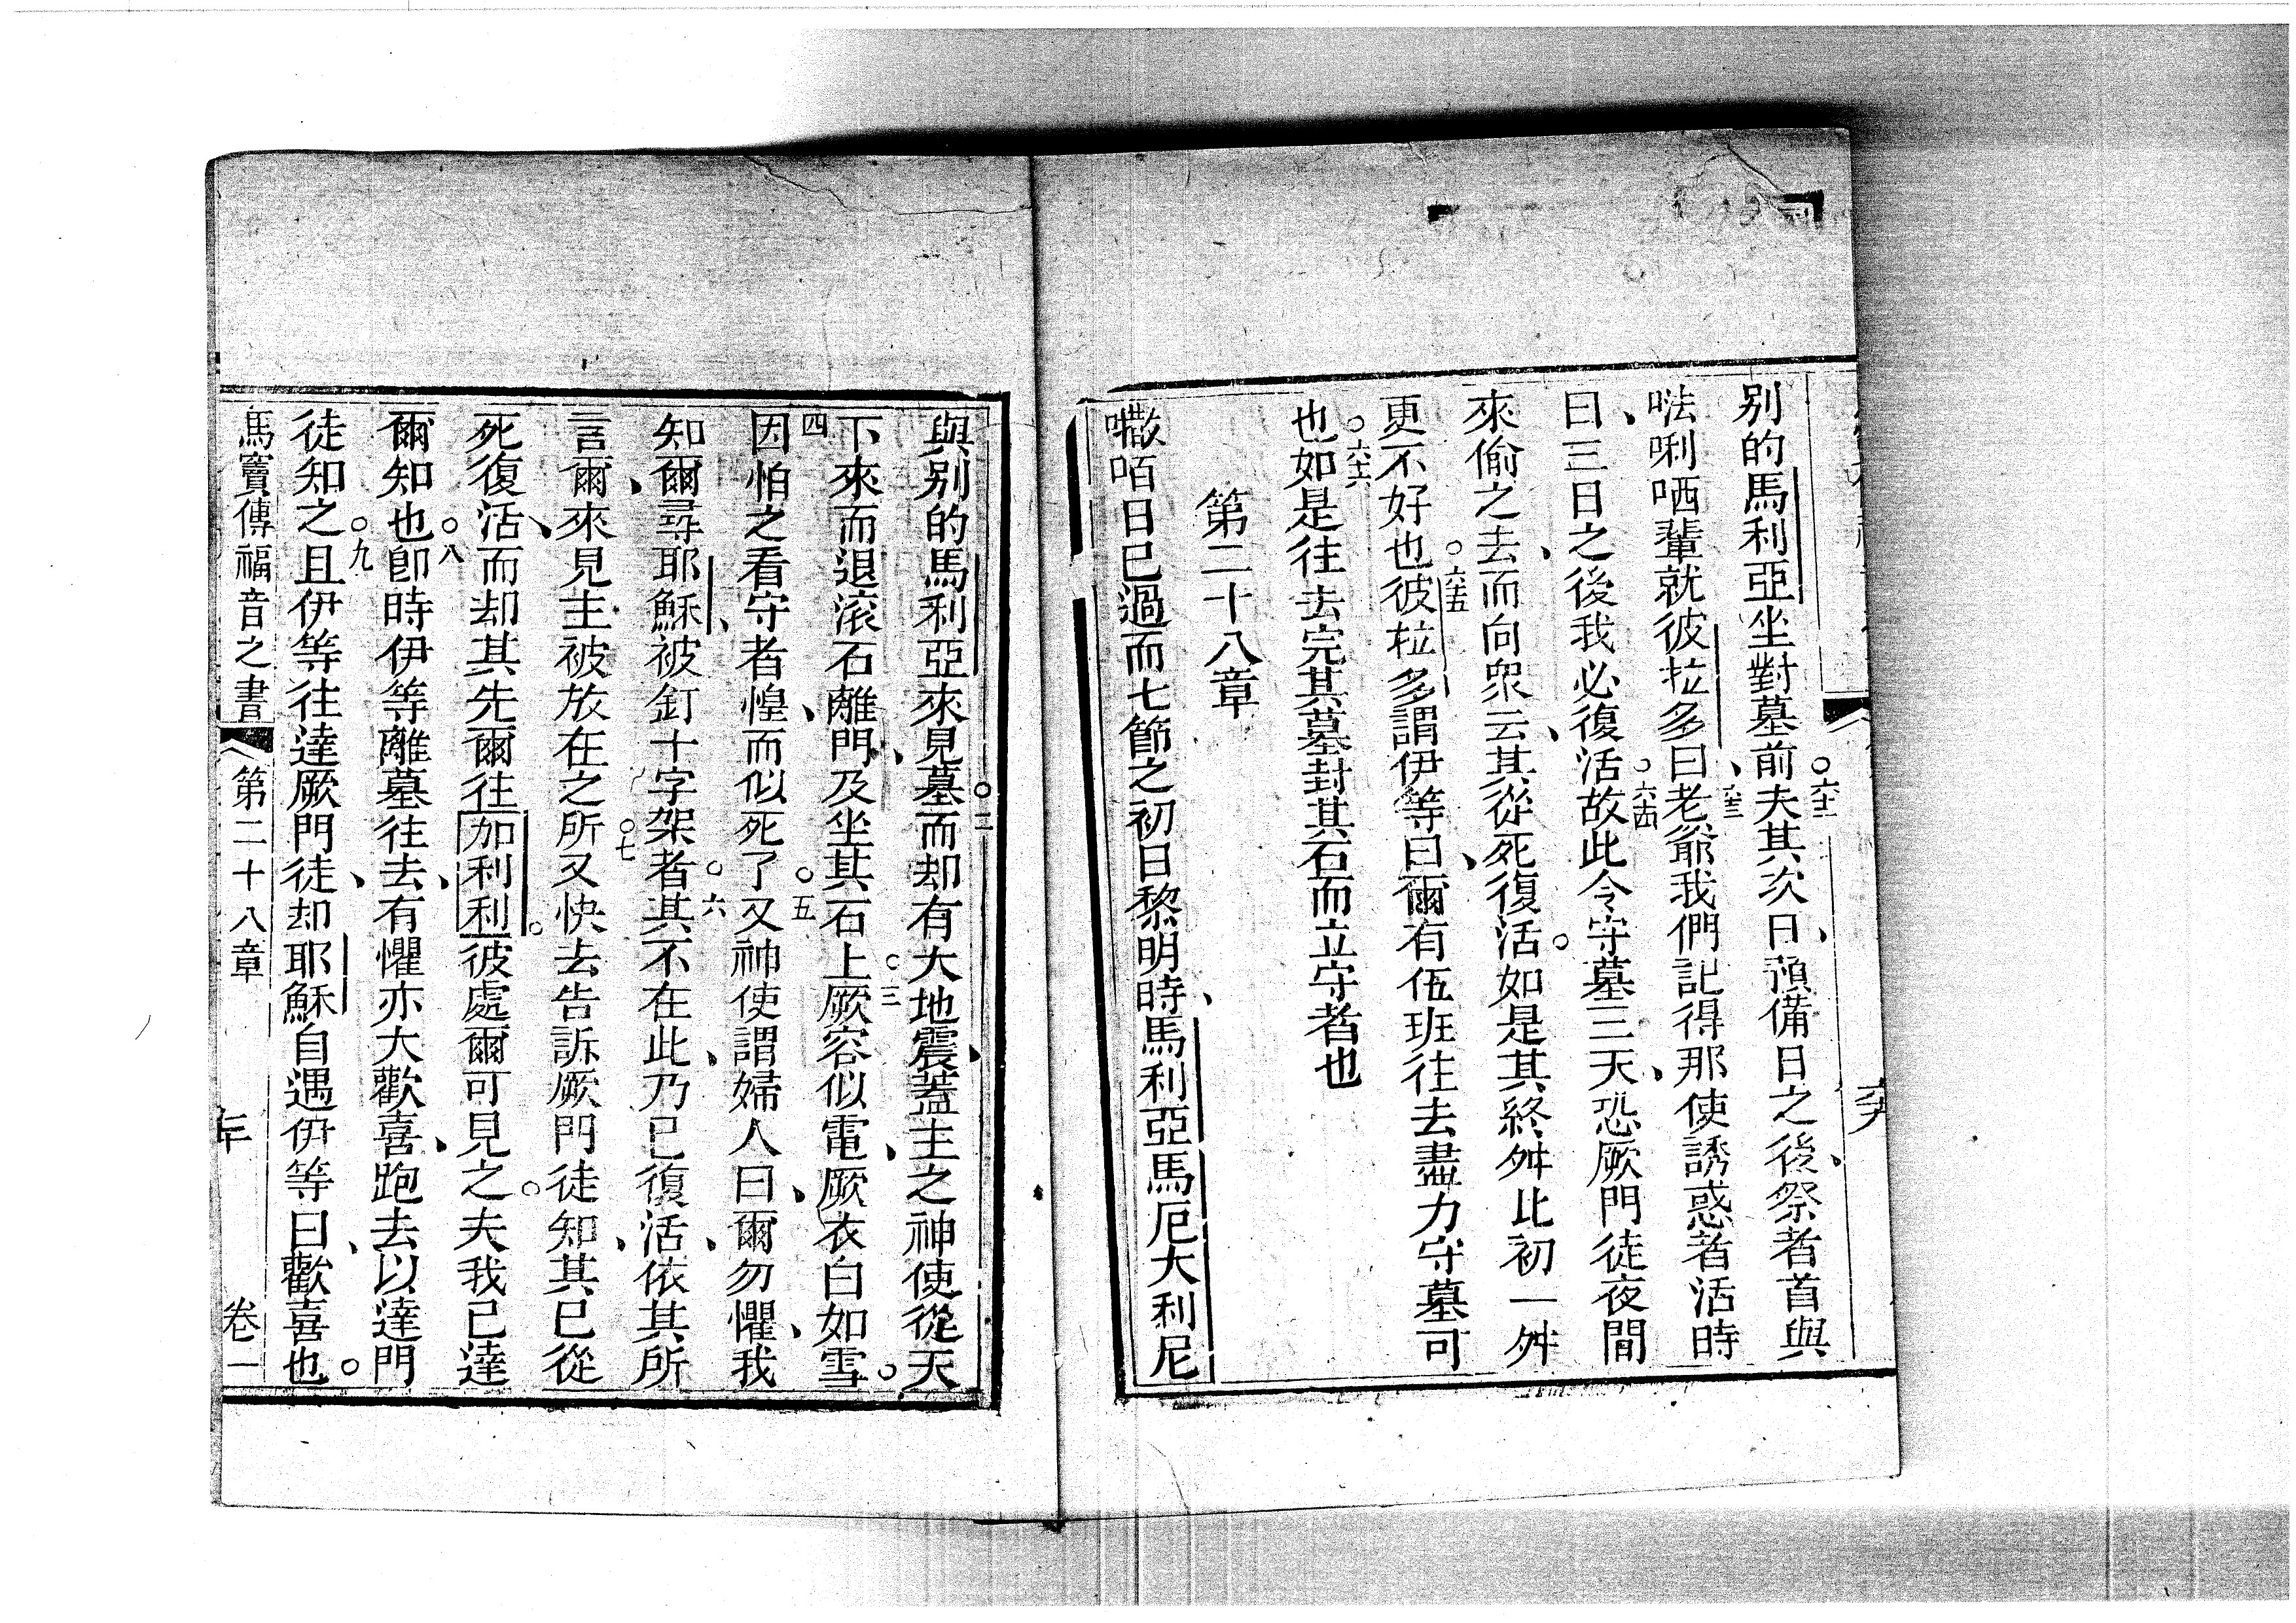 別的馬利亞坐對墓前○六十二夫其次日、預備日之後、祭者首與
𠵽唎哂輩就彼拉多曰、六十三老爺我們記得那使誘惑者活時
曰、三日之後我必復活○六十四故此令守墓三天、恐厥門徒夜間
來偷之去、而向衆云、其從死復活。如是其終舛比初一舛
更不好也○六十五彼拉多謂伊等曰、爾有伍班往去盡力守墓可
也○六十六如是往去完其墓封其石而立守者也
第二十八章
㘔咟日已過而七節之初日黎明時、馬利亞馬厄大利尼
與别的馬利亞來見墓○二而却有大地震、蓋主之神使從天
下來而退滾石離門、及坐其石上○三厥容似電、厥衣白如雪。
四因怕之看守者惶、而似死了○五又神使謂婦人曰、爾勿懼、我
知爾尋耶穌、被釘十字架者○六其不在此、乃已復活、依其所
言、爾來見主被放在之所○七又快去告訴厥門徒知、其已從
死復活、而却其先爾往加利利。彼處爾可見之。夫我已達
爾知也○八卽時伊等離墓往去、有懼亦大歡喜、跑去以達門
徒知之○九且伊等往達厥門徒、却耶穌自遇伊等曰、歡喜也。
馬竇傳福音之書 第二十八章 卷一